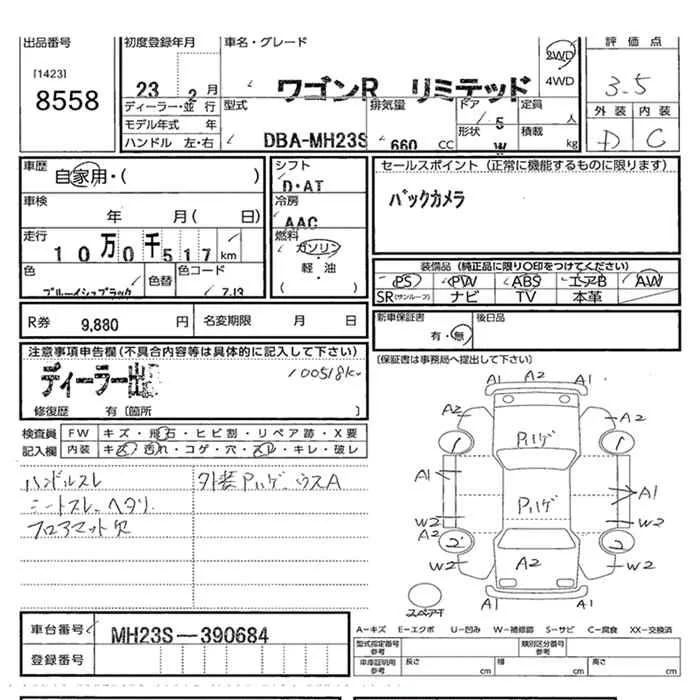 出品番号
[1423]
8558
初度登録年月
23 2 月
車名・グレード
ワゴンR リミテッド
2WD
4WD
評価点
3.5
外装 内装
D C
ディーラー・並行
モデル年式 年
ハンドル 左・右
型式
DBA-MH23S
排気量
660 CC
ドア
5
形状
W
定員
人
積載
kg
車歴
自家用・( )
車検
年 月( 日)
走行
10万0千517 km
色
ブルーイッシュブラック
色替
色コード
ZJ3
シフト
D・AT
冷房
AAC
燃料
ガソリン
軽・油
( )
セールスポイント (正常に機能するものに限ります)
バックカメラ
装備品 (純正品に限り〇印をつけてください)
PS PW ABS エアB AW
SR(サンルーフ) ナビ TV 本革
R券 9,880 円
名変期限 月 日
新車保証書
有・無
後日品
(保証書は事務局へ提出して下さい)
注意事項申告欄(不具合内容等は具体的に記入して下さい)
ディーラー出
100518K
修復歴 有〔箇所 〕
検査員
記入欄
FW キズ・飛石・ヒビ割・リペア跡・X要
内装 キズ・汚れ・コゲ・穴・スレ・キレ・破レ
ハンドルスレ
シートスレ、ヘタリ
フロアマット欠
外装Pハゲ、ウスA
A1 A2 A1
A2 A2
1 Pハゲ 1
A1 Pハゲ A1
W2 W2
A2
2 2
W2 A2 W2
A1 A1
スペアT
A-キズ E-エクボ U-凹み W-補修跡 S-サビ C-腐食 XX-交換済
車台番号
MH23S-390684
登録番号
型式指定番号
参考
類別区分番号
参考
車庫証明用
参考
長さ cm
幅 cm
高さ cm